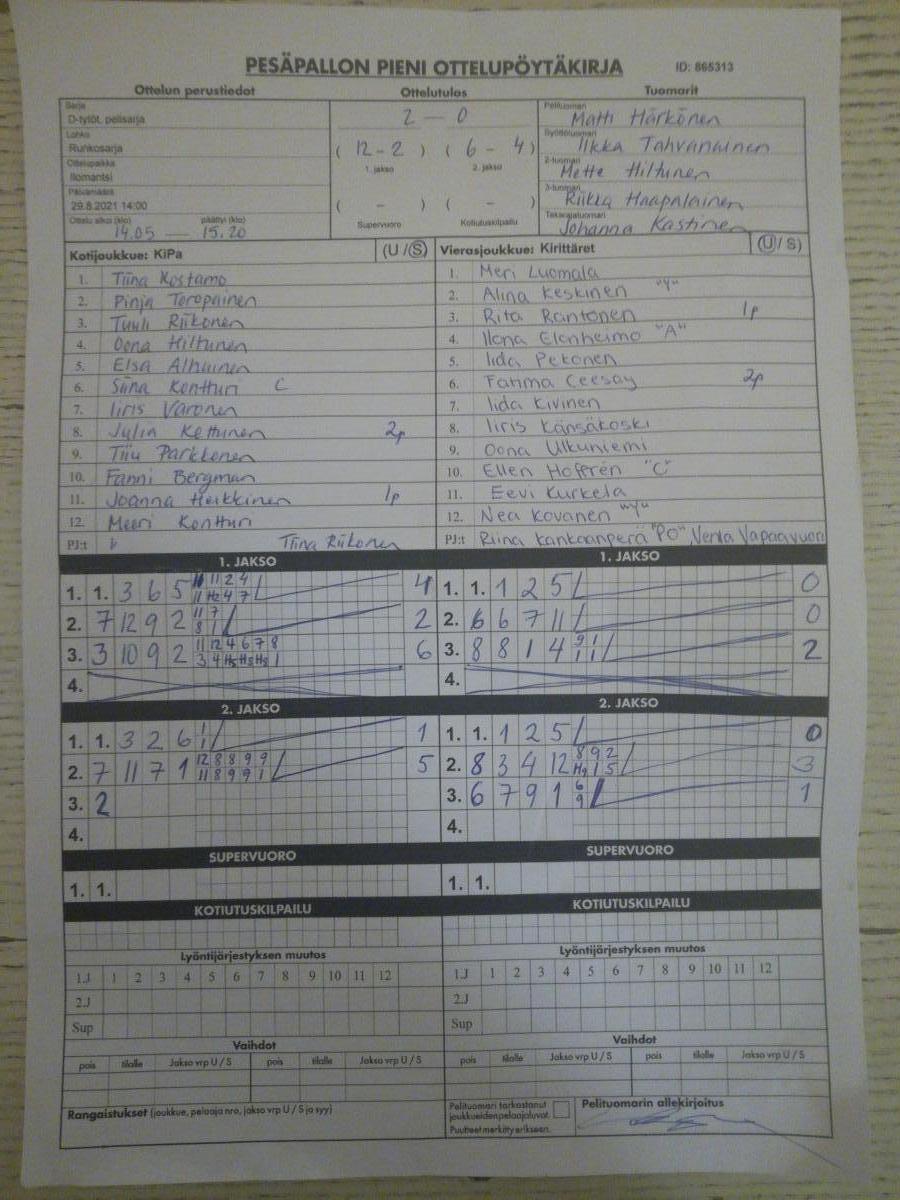 PESÄPALLON PIENI OTTELUPÖYTÄKIRJA ID: 865313
Ottelun perustiedot Ottelutulos Tuomarit
Sarja
D-tytöt, pelisarja
Lohko
Runkosarja
Ottelupaikka
Ilomantsi
Päivämäärä
29.8.2021 14:00
Ottelu alkoi (klo) päättyi (klo)
14.05 — 15.20
2 — 0
( 12 - 2 ) ( 6 - 4 )
1. jakso 2. jakso
( - ) ( - )
Supervuoro Kotiutuskilpailu
Pelituomari
Matti Härkönen
Syöttötuomari
Ilkka Tahvanainen
2-tuomari
Mette Hiltunen
3-tuomari
Riikka Haapalainen
Takarajatuomari
Johanna Kastinen
Kotijoukkue: KiPa (U / S)
1. Tiina Kostamo
2. Pinja Toropainen
3. Tuuli Riikonen
4. Oona Hiltunen
5. Elsa Alhainen
6. Siina Kontturi C
7. Iiris Varonen
8. Julia Kettunen 2p
9. Tiiu Parkkonen
10. Fanni Bergman
11. Joanna Heikkinen 1p
12. Meeri Kontturi
PJ:t Tiina Riikonen
Vierasjoukkue: Kirittäret (U / S)
1. Meri Luomala
2. Alina Keskinen "Y"
3. Rita Rantonen 1p
4. Ilona Elenheimo "A"
5. Iida Pekonen
6. Fatima Ceesay 2p
7. Iida Kivinen
8. Iiris Känsäkoski
9. Oona Ulkuniemi
10. Ellen Hoffrén "C"
11. Eevi Kurkela
12. Nea Kovanen "Y"
PJ:t Riina Kankaanperä "PO" Venla Vapaavuori
1. JAKSO
1. 1. 3 6 5 11 2 4 4
11 H2 4 7
2. 7 12 9 2 11 7 2
8 1
3. 3 10 9 2 11 12 4 6 7 8 6
3 4 H5 H5 H8 1
4.
1. JAKSO
1. 1. 1 2 5 0
2. 6 6 7 11 0
3. 8 8 1 4 9 1 2
1 1
4.
2. JAKSO
1. 1. 3 2 6 1 1
1
2. 7 11 7 1 12 8 8 9 9 5
11 8 9 9 1
3. 2
4.
2. JAKSO
1. 1. 1 2 5 0
2. 8 3 4 12 8 9 2 3
H9 1 5
3. 6 7 9 1 6 1
9
4.
SUPERVUORO SUPERVUORO
1. 1. 1. 1.
KOTIUTUSKILPAILU KOTIUTUSKILPAILU
Lyöntijärjestyksen muutos Lyöntijärjestyksen muutos
1.J 1 2 3 4 5 6 7 8 9 10 11 12 1.J 1 2 3 4 5 6 7 8 9 10 11 12
2.J 2.J
Sup Sup
Vaihdot Vaihdot
pois tilalle Jakso vrp U / S pois tilalle Jakso vrp U / S pois tilalle Jakso vrp U / S pois tilalle Jakso vrp U / S
Rangaistukset (joukkue, pelaaja nro, jakso vrp U / S ja syy)
Pelituomari tarkastanut
joukkueiden pelaajaluvat.
Puutteet merkitty erikseen.
Pelituomarin allekirjoitus